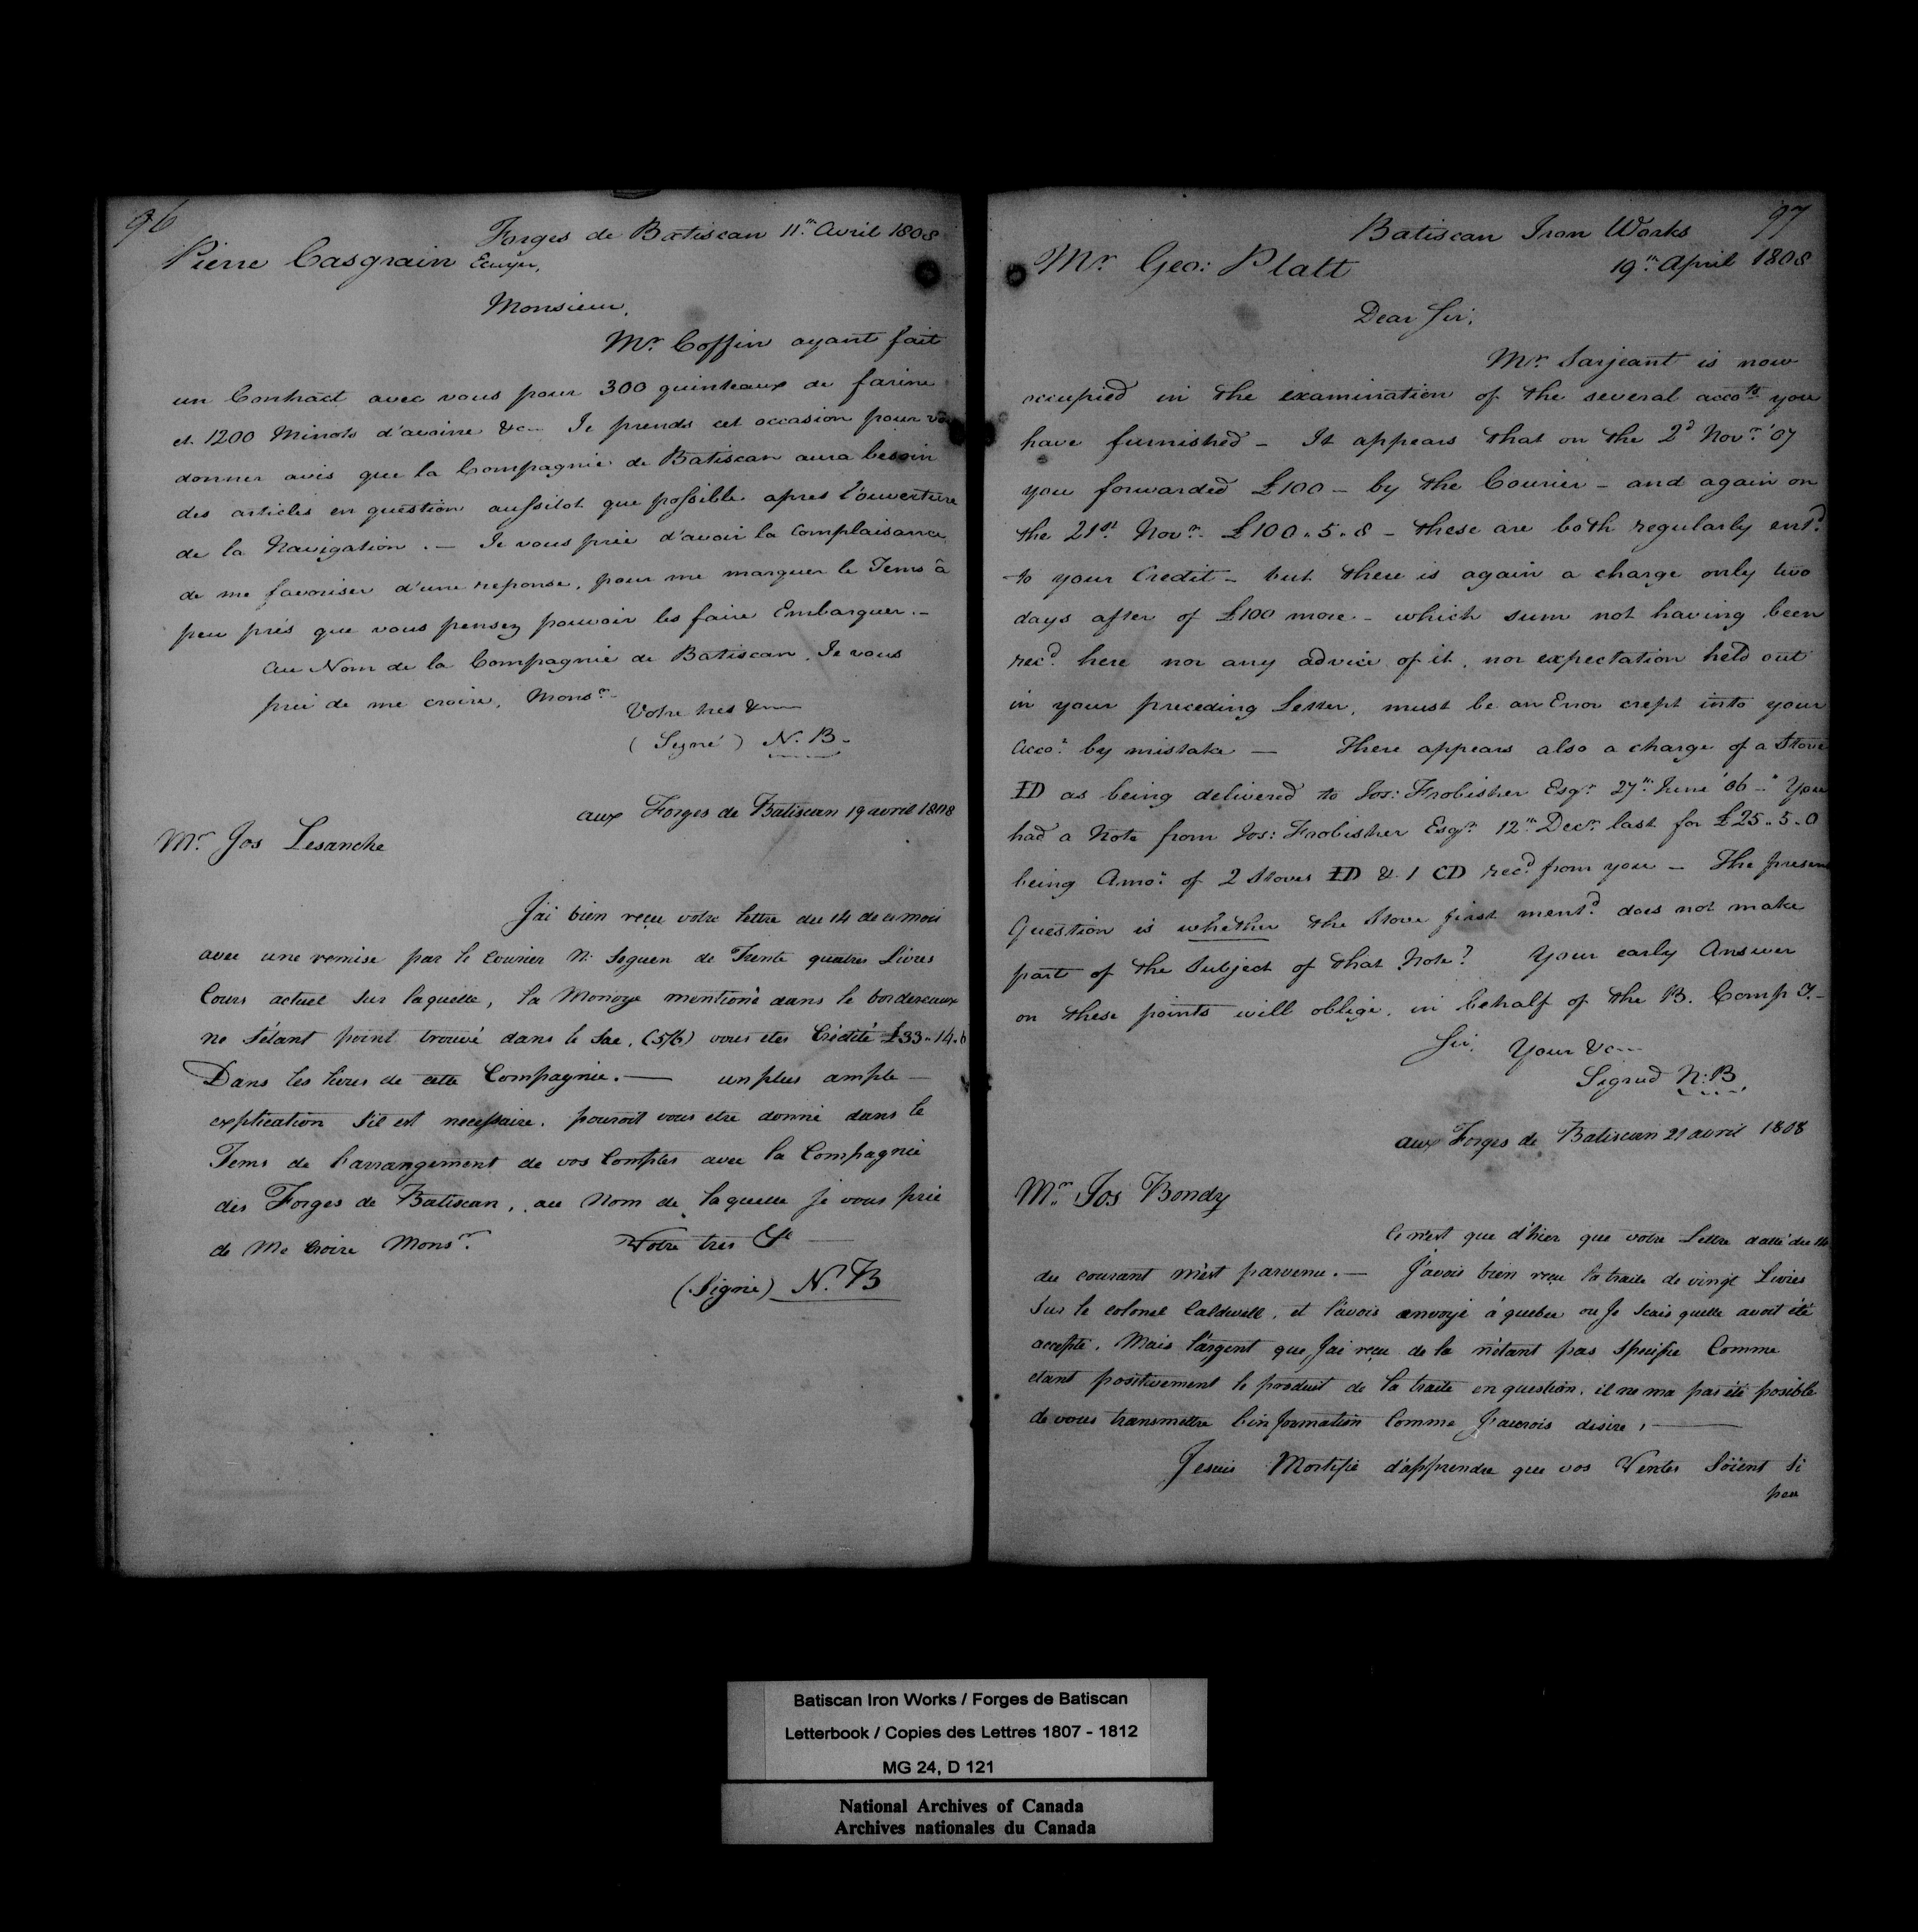 96
Forges de Batiscan 11.m Avril 1808
Pierre Casgrain Ecuyer,
Monsieur,
Mr. Coffin ayant fait
un Contract avec vous pour 300 quinteaux de farine
et 1200 Minots d'avoine &c— Je prends cet occasion pour vo
donner avis que la Compagnie de Batiscan aura besoin
des articles en question aussitot que possible apres l'ouverture
de la Navigation .— Je vous prie d'avoir la Complaisance
de me favoriser d'une reponse, pour me marquer le Tems â
peu prés que vous pensez pouvoir les faire Embarquer.—
Au Nom de la Compagnie de Batiscan, Je vous
prie de me croire, Monsr.
Votre tres &—
(Signé) N. B—
aux Forges de Batiscan 19 avril 1808
Mr. Jos Lesanche
J'ai bien reçu votre lettre du 14 de ce mois
avec une remise par le Courier N: Seguen de Trente quatres Livres
Cours actuel sur laquelle, la Monoye mentioné dans le bordereaux
ne s'étant point trouvé dans le Sac, (5/6) vous etes Crédité £33.. 14.. 6
Dans les livres de cette Compagnie.— un plus ample —
explication s'il est necessaire, pouroit vous etre donné dans le
Tems de l'arrangement de vos Comptes avec la Compagnie
des Forges de Batiscan, au Nom de laquelle je vous prie
de Me Croire Monsr.
Votre tres &c —
(Signé) N. B
97
Batiscan Iron Works
19.m April 1808
Mr. Geo: Platt
Dear Sir,
Mr Sarjeant is now
occupied in the examination of the several accots you
have furnished — It appears that on the 2d Novr. '07
you forwarded £100 — by the Courier — and again on
the 21st Novr. £100.. 5.. 8 — these are both regularly entd.
to your Credit — but there is again a charge only two
days after of £100 more — which sum not having been
recd. here nor any advice of it, nor expectation held out
in your preceding Letter, must be an Error crept into your
Acco.t by mistake — There appears also a charge of a Stove
ID as being delivered to Jos: Frobisher Esqr. 27.m June '06 — You
had a Note from Jos: Frobisher Esqr. 12.m Decr. last for £25.. 5.. 0
being Amot. of 2 Stoves ID & 1 CD recd. from you — The present
Question is whether the Stove first mentd. does not make
part of the Subject of that Note? Your early Answer
on these points will oblige, in behalf of the B. Compy.—
Sir, Your &c—
Signed N: B,
aux Forges de Batiscan 21 avril 1808
Mr. Jos Bondy
Ce n'est que d'hier que votre Lettre datté du 14
du courant m'est parvenu.— J'avois bien reçu la traite de vingt Livres
sur le colonel Caldwell, et l'avois envoyé á quebec ou Je scais quelle avoit été
accepté, Mais l'argent que J'ai reçu de la n'étant pas specifie Comme
etant positivement le produit de la traite en question, il ne ma pas été posible
de vous transmettre l'information Comme J'aurois desire, —
Je suis Mortifié d'apprendre que vos Ventes Soient Si
peu
Batiscan Iron Works / Forges de Batiscan
Letterbook / Copies des Lettres 1807 - 1812
MG 24, D 121
National Archives of Canada
Archives nationales du Canada